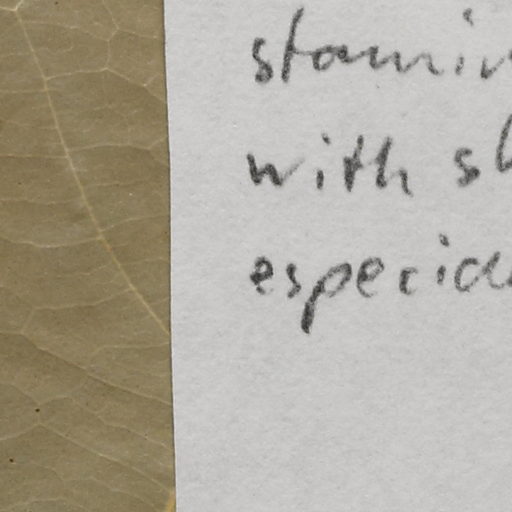 stamin
with sh
especia